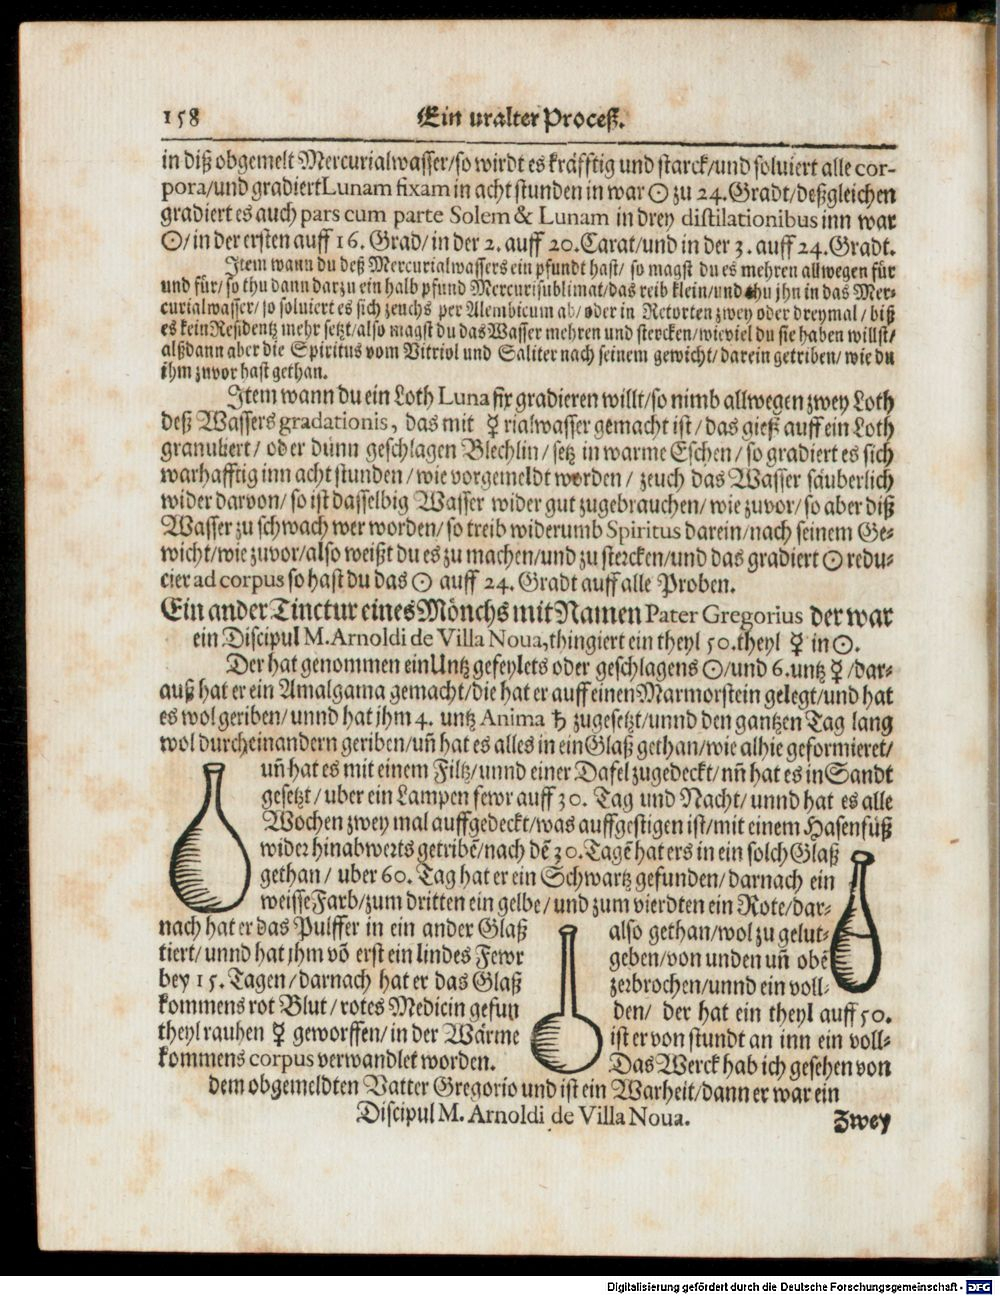 158 Ein uralter Proceß.
in diß obgemelt Mercurialwasser/so wirdt es kräfftig und starck/und soluiert alle cor-
pora/und gradiert Lunam fixam in acht stunden in war ☉ zu 24. Gradt/deßgleichen
gradiert es auch pars cum parte Solem & Lunam in drey distilationibus inn war
☉/in der ersten auff 16. Grad/in der 2. auff 20. Carat/und in der 3. auff 24. Gradt.
Item wann du deß Mercurialwassers ein pfundt hast/ so magst du es mehren allwegen für
und für/ so thu dann darzu ein halb pfund Mercuri sublimat/das reib klein/und thu jhn in das Mer-
curialwasser/ so soluiert es sich zeuchs per Alembicum ab/ oder in Retorten zwey oder dreymal/ biß
es kein Residentz mehr setzt/also magst du das Wasser mehren und stercken/wieviel du sie haben willst/
alßdann aber die Spiritus vom Vitriol und Saliter nach seinem gewicht/ darein getriben/ wie du
ihm zuvor hast gethan.
Item wann du ein Loth Luna fix gradieren willt/so nimb allwegen zwey Loth
deß Wassers gradationis, das mit ☿ rialwasser gemacht ist/ das gieß auff ein Loth
granuliert/ oder dünn geschlagen Blechlin/ setz in warme Eschen/ so gradiert es sich
warhafftig inn acht stunden/ wie vorgemeldt worden/ zeuch das Wasser säuberlich
wider darvon/ so ist dasselbig Wasser wider gut zugebrauchen/ wie zuvor/ so aber diß
Wasser zu schwach wer worden/ so treib widerumb Spiritus darein/nach seinem Ge-
wicht/wie zuvor/also weißt du es zu machen/und zu stercken/und das gradiert ☉ redu-
cier ad corpus so hast du das ☉ auff 24. Gradt auff alle Proben.
Ein ander Tinctur eines Mönchs mit Namen Pater Gregorius der war
ein Discipul M. Arnoldi de Villa Noua, thingiert ein theyl 50. theyl ☿ in ☉.
Der hat genommen ein Untz gefeylets oder geschlagens ☉/und 6. untz ☿/dar-
auß hat er ein Amalgama gemacht/die hat er auff einen Marmorstein gelegt/und hat
es wol geriben/ unnd hat jhm 4. untz Anima ♄ zugesetzt/unnd den gantzen Tag lang
wol durcheinandern geriben/uñ hat es alles in ein Glaß gethan/wie alhie geformieret/
uñ hat es mit einem Filtz/unnd einer Dafel zugedeckt/uñ hat es in Sandt
gesetzt/ uber ein Lampen fewr auff 30. Tag und Nacht/ unnd hat es alle
Wochen zwey mal auffgedeckt/was auffgestigen ist/mit einem Hasenfüß
wider hinabwerts getribẽ/nach dẽ 30. Tagẽ hat ers in ein solch Glaß
gethan/ uber 60. Tag hat er ein Schwartz gefunden/ darnach ein
weisse Farb/zum dritten ein gelbe/ und zum vierdten ein Rote/dar-
nach hat er das Pulffer in ein ander Glaß also gethan/wol zu gelut-
tiert/ unnd hat jhm võ erst ein lindes Fewr geben/von unden uñ obẽ
bey 15. Tagen/ darnach hat er das Glaß zerbrochen/unnd ein voll-
kommens rot Blut/ rotes Medicin gefun den/ der hat ein theyl auff 50.
theyl rauhen ☿ geworffen/ in der Wärme ist er von stundt an inn ein voll-
kommens corpus verwandlet worden. Das Werck hab ich gesehen von
dem obgemeldten Vatter Gregorio und ist ein Warheit/dann er war ein
Discipul M. Arnoldi de Villa Noua.
Zwey
Digitalisierung gefördert durch die Deutsche Forschungsgemeinschaft - DFG